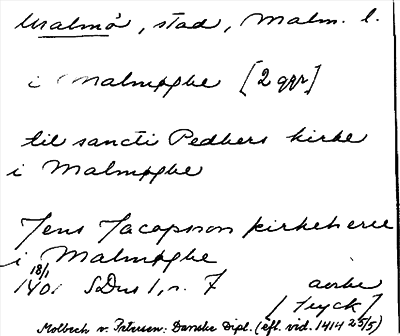 Malmö, stad, Malm. l.
i Malmøghe [2 ggr]
til sancti Pedhers kirke
i Malmøghe
Jens Jacopsson kirkeherre
i Malmøghe
18/1
1401 SDns 1, s. 7 avskr
[tryck]
Molbech o. Petersen: Danske Dipl. (efl. vid. 1414 25/5)